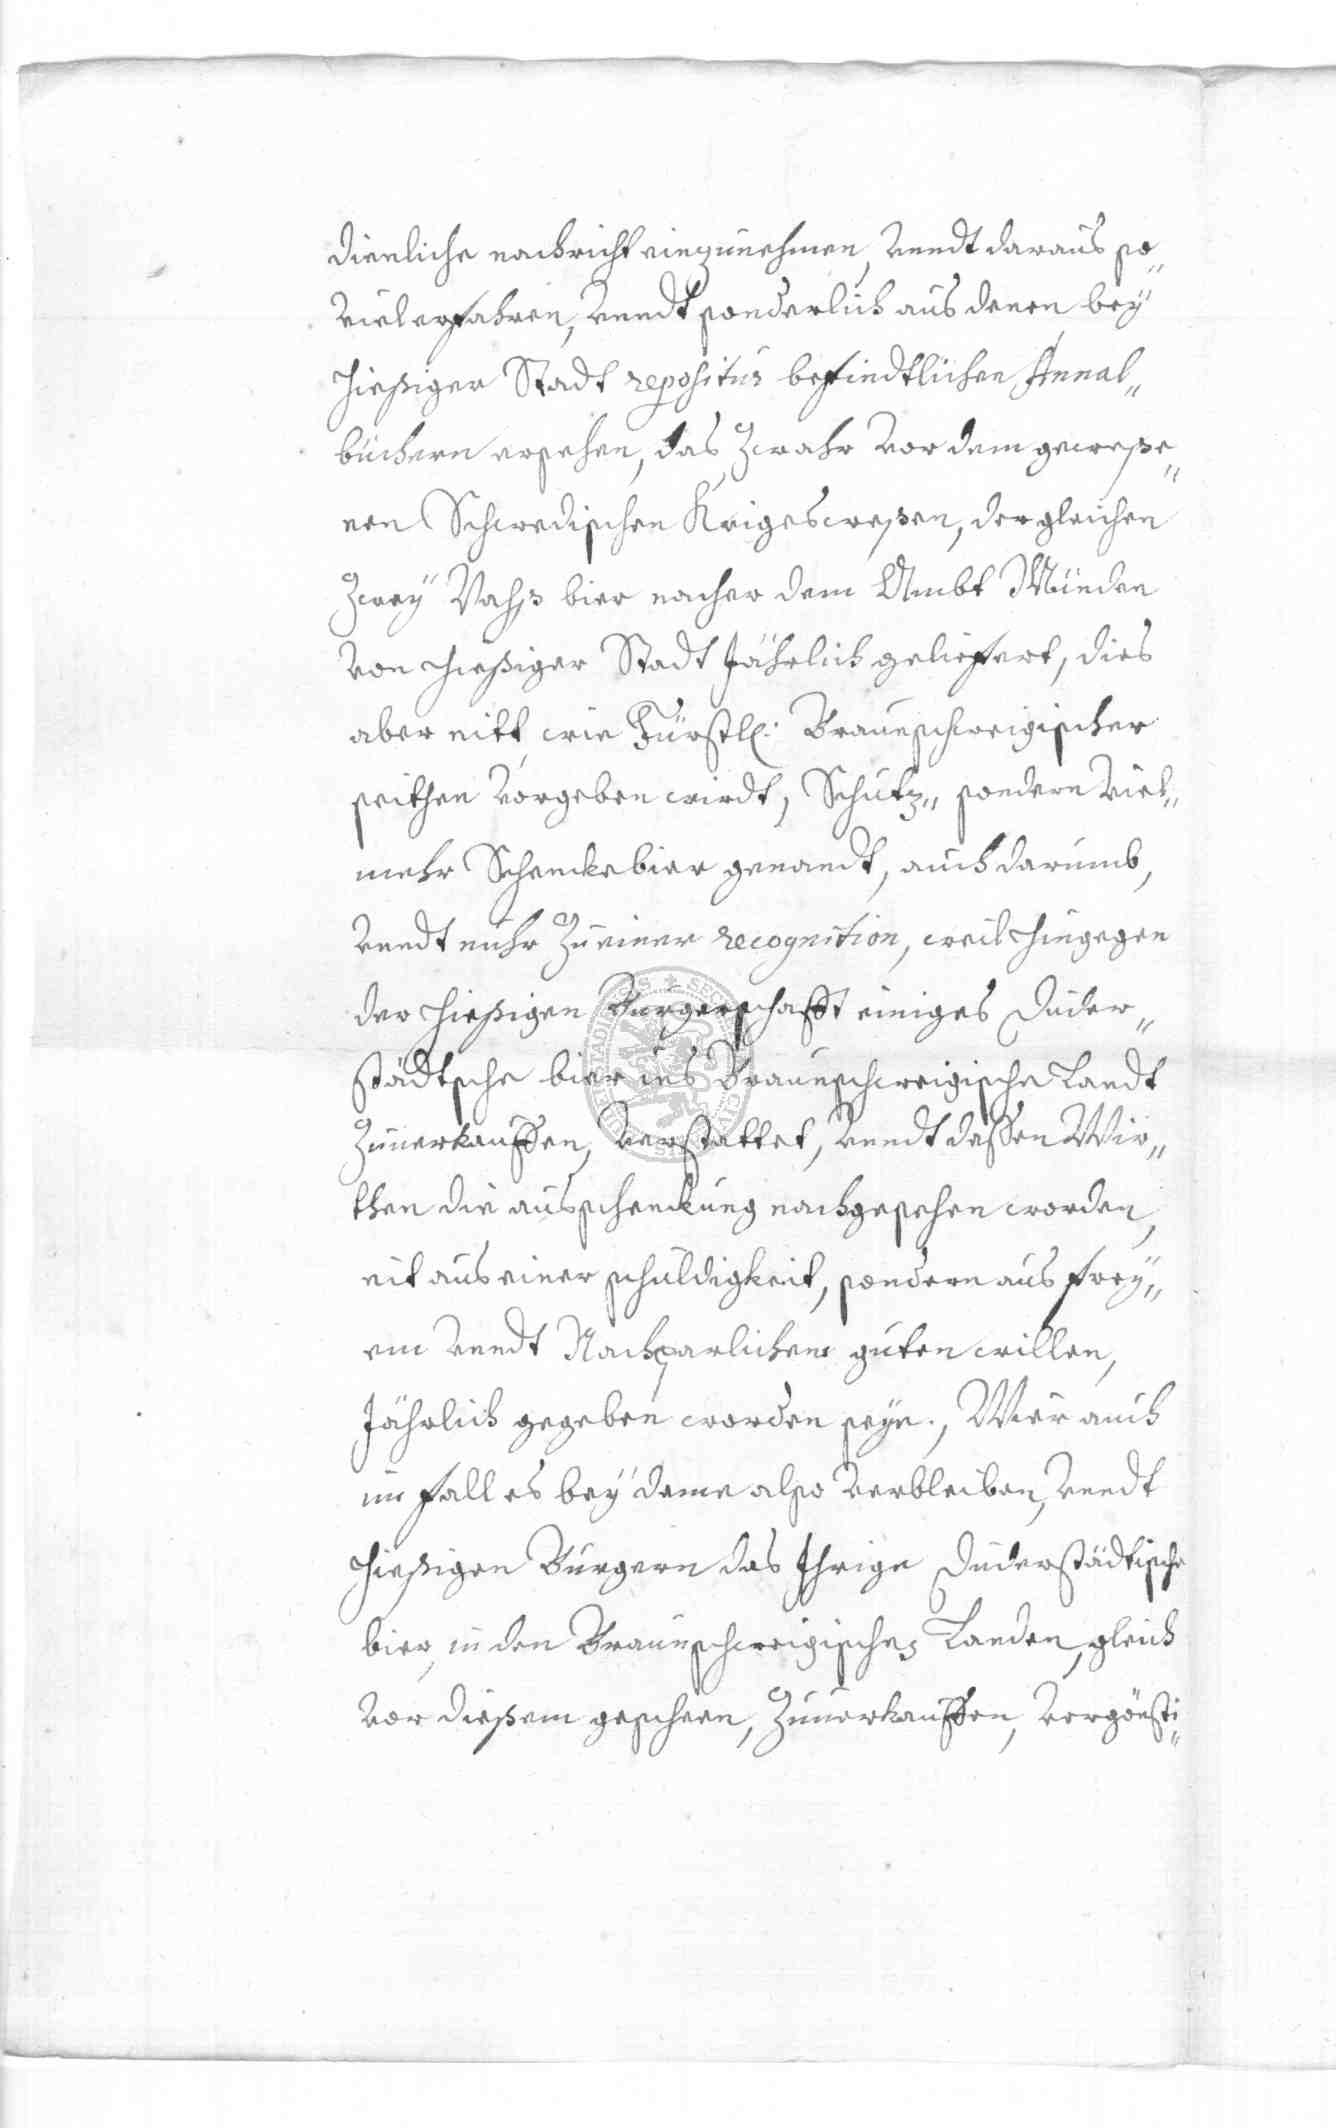 dienliche nachricht einzunehmen, vundt daraus so„
viel erfahren, vundt sonderlich aus denen bey
hießiger Stadt repositur befindtlichen Annal„
büchern ersehen, das Zwahr vor dem geweße„
nen Schwedischen Krigeswesen, dergleichen
Zwey Vahß bier nacher dem Ambt Münden
von hießiger Stadt Jährlich geliefert, dies
aber nitt wie Fürstl: Braunschweigischer
seithen vorgeben wirdt, Schutz„ sondern viel„
mehr Schenckebier genandt, auch darumb,
vundt nuhr Zu einer recognition, weil hingegen
der hießigen Burgerschafft einiges Duder„
städtsche bier ins Braunschweigische Landt
Zuuerkauffen, verstattet, vundt dessen Wir„
then die ausschenckung nachgesehen worden,
nit aus einer schuldigkeit, sondern aus frey„
em vundt Nachparlichem guten willen,
Jährlich gegeben worden seye., Wir auch
im fall es bey deme also verbleiben, vundt
hießigen Burgern das Ihrige Duderstädtische
bier, in den Braunschweigischen Landen, gleich
vor dießem geschehen, Zuuerkauffen, vergönsti„